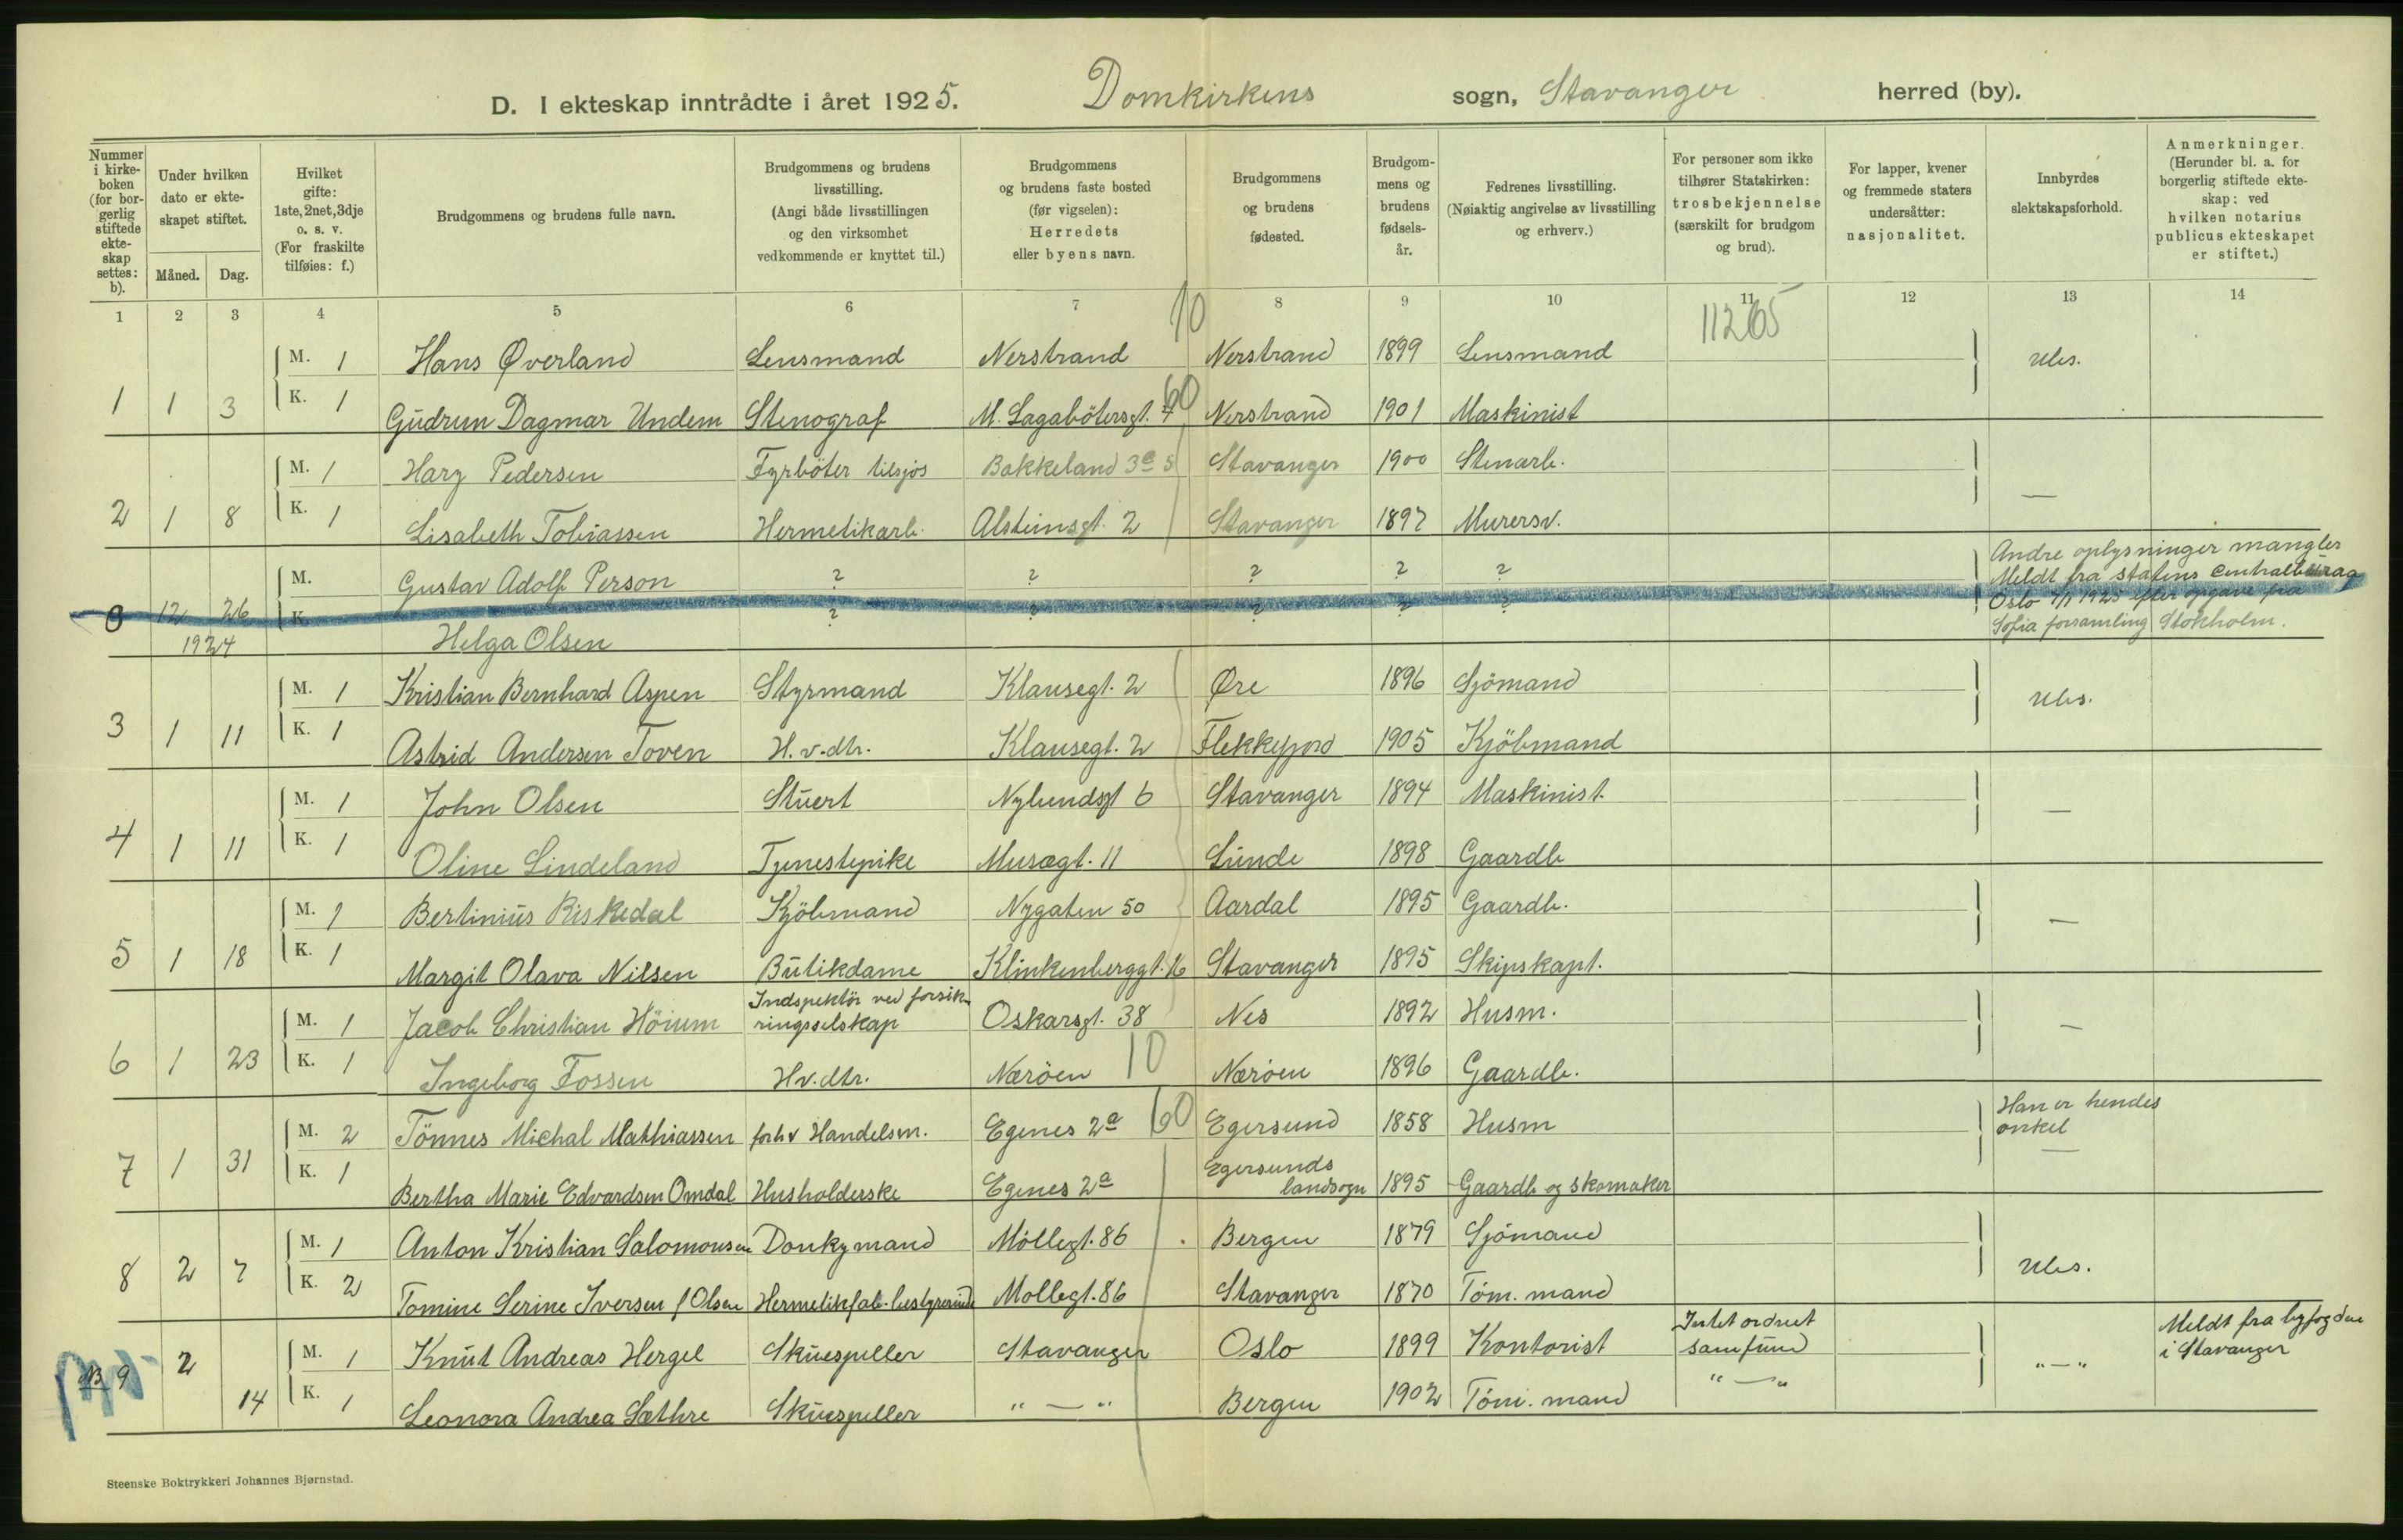 D. I ekteskap inntrådte i året 1925. Domkirkens sogn, Stavanger herred (by).
Nummer i kirke-boken (for bor-gerlig stiftede ekte-skap settes: b).
Under hvilken dato er ekte-skapet stiftet.
Måned. Dag.
Hvilket gifte: 1ste, 2net, 3dje o. s. v. (For fraskilte tilføies: f.)
Brudgommens og brudens fulle navn.
Brudgommens og brudens livsstilling. (Angi både livsstillingen og den virksomhet vedkommende er knyttet til.)
Brudgommens og brudens faste bosted (før vigselen): Herredets eller byens navn.
Brudgommens og brudens fødested.
Brudgom-mens og brudens fødsels-år.
Fedrenes livsstilling. (Nøiaktig angivelse av livsstilling og erhverv.)
For personer som ikke tilhører Statskirken: trosbekjennelse (særskilt for brudgom og brud).
For lapper, kvener og fremmede staters undersåtter: nasjonalitet.
Innbyrdes slektskapsforhold.
Anmerkninger. (Herunder bl. a. for borgerlig stiftede ekte-skap: ved hvilken notarius publicus ekteskapet er stiftet.)
1 2 3 4 5 6 7 8 9 10 11 12 13 14
10 11265
M. 1 Hans Øverland Lensmand Nerstrand Nerstrand 1899 Lensmand Ubs.
1 1 3 K. 1 Gudrun Dagmar Undem Stenograf M. Lagabötersgt. 4 60 Nerstrand 1901 Maskinist
M. 1 Hary Pedersen Fyrböter tilsjös Bakkeland 3e 5 Stavanger 1900 Stenarb. —
2 1 8 K. 1 Lisabeth Tobiassen Hermetikarb. Alsteinsgt. 2 Stavanger 1897 Murersv.
M. Gustav Adolf Person ? ? ? ? ? Andre oplysninger mangler
Meldt fra statens Centralbyraa
0 12 26 K. ? ? ? ? ? Oslo 7/1 1925 efter opgave fra
1924 Helga Olsen Sofia forsamling Stokholm.
M. 1 Kristian Bernhard Aspen Styrmand Klausegt. 2 Øre 1896 Sjömand Ubs.
3 1 11 K. 1 Astrid Andersen Toven H. v. dtr. Klausegt. 2 Flekkefjord 1905 Kjöbmand
M. 1 John Olsen Stuert Nylundsgt 6 Stavanger 1894 Maskinist —
4 1 11 K. 1 Oline Lindeland Tjenestepike Musægt. 11 Lunde 1898 Gaardb
M. 1 Bertinius Riskedal Kjöbmand Nygaten 50 Aardal 1895 Gaardb. —
5 1 18 K. 1 Margit Olava Nilsen Butikdame Klinkenberggt. 16 Stavanger 1895 Skipskapt.
Indspektör ved forsik-
M. 1 Jacob Christian Höium ringsselskap Oskarsgt. 38 Nes 1892 Husm. —
6 1 23 K. 1 Ingeborg Fossen Hv. dtr. Næröen 10 Næröen 1896 Gaardb.
Han er hendes
M. 2 Tönnes Michal Mathiassen forhv Handelsm. Egenes 2a 60 Egersund 1858 Husm onkel
7 1 31 K. 1 Bertha Marie Edvardsen Omdal Husholderske Egenes 2a Egersunds landsogn 1895 Gaardb og skomaker —
M. 1 Anton Kristian Salomonsen Donkymand Möllegt. 86 Bergen 1879 Sjömand Ubs.
8 2 7 K. 2 Tomine Serine Iversen f Olsen Hermetikfab. bestyrerinde Möllegt. 86 Stavanger 1870 Töm. mand
M. 1 Knut Andreas Hergel Skuespiller Stavanger Oslo 1899 Kontorist Intet ordnet samfund "—" Meldt fra byfogden i Stavanger
B 9 2 14 K. 1 Leonora Andrea Sæthre Skuespiller "—" Bergen 1902 Töm. mand "—"
Steenske Boktrykkeri Johannes Bjørnstad.